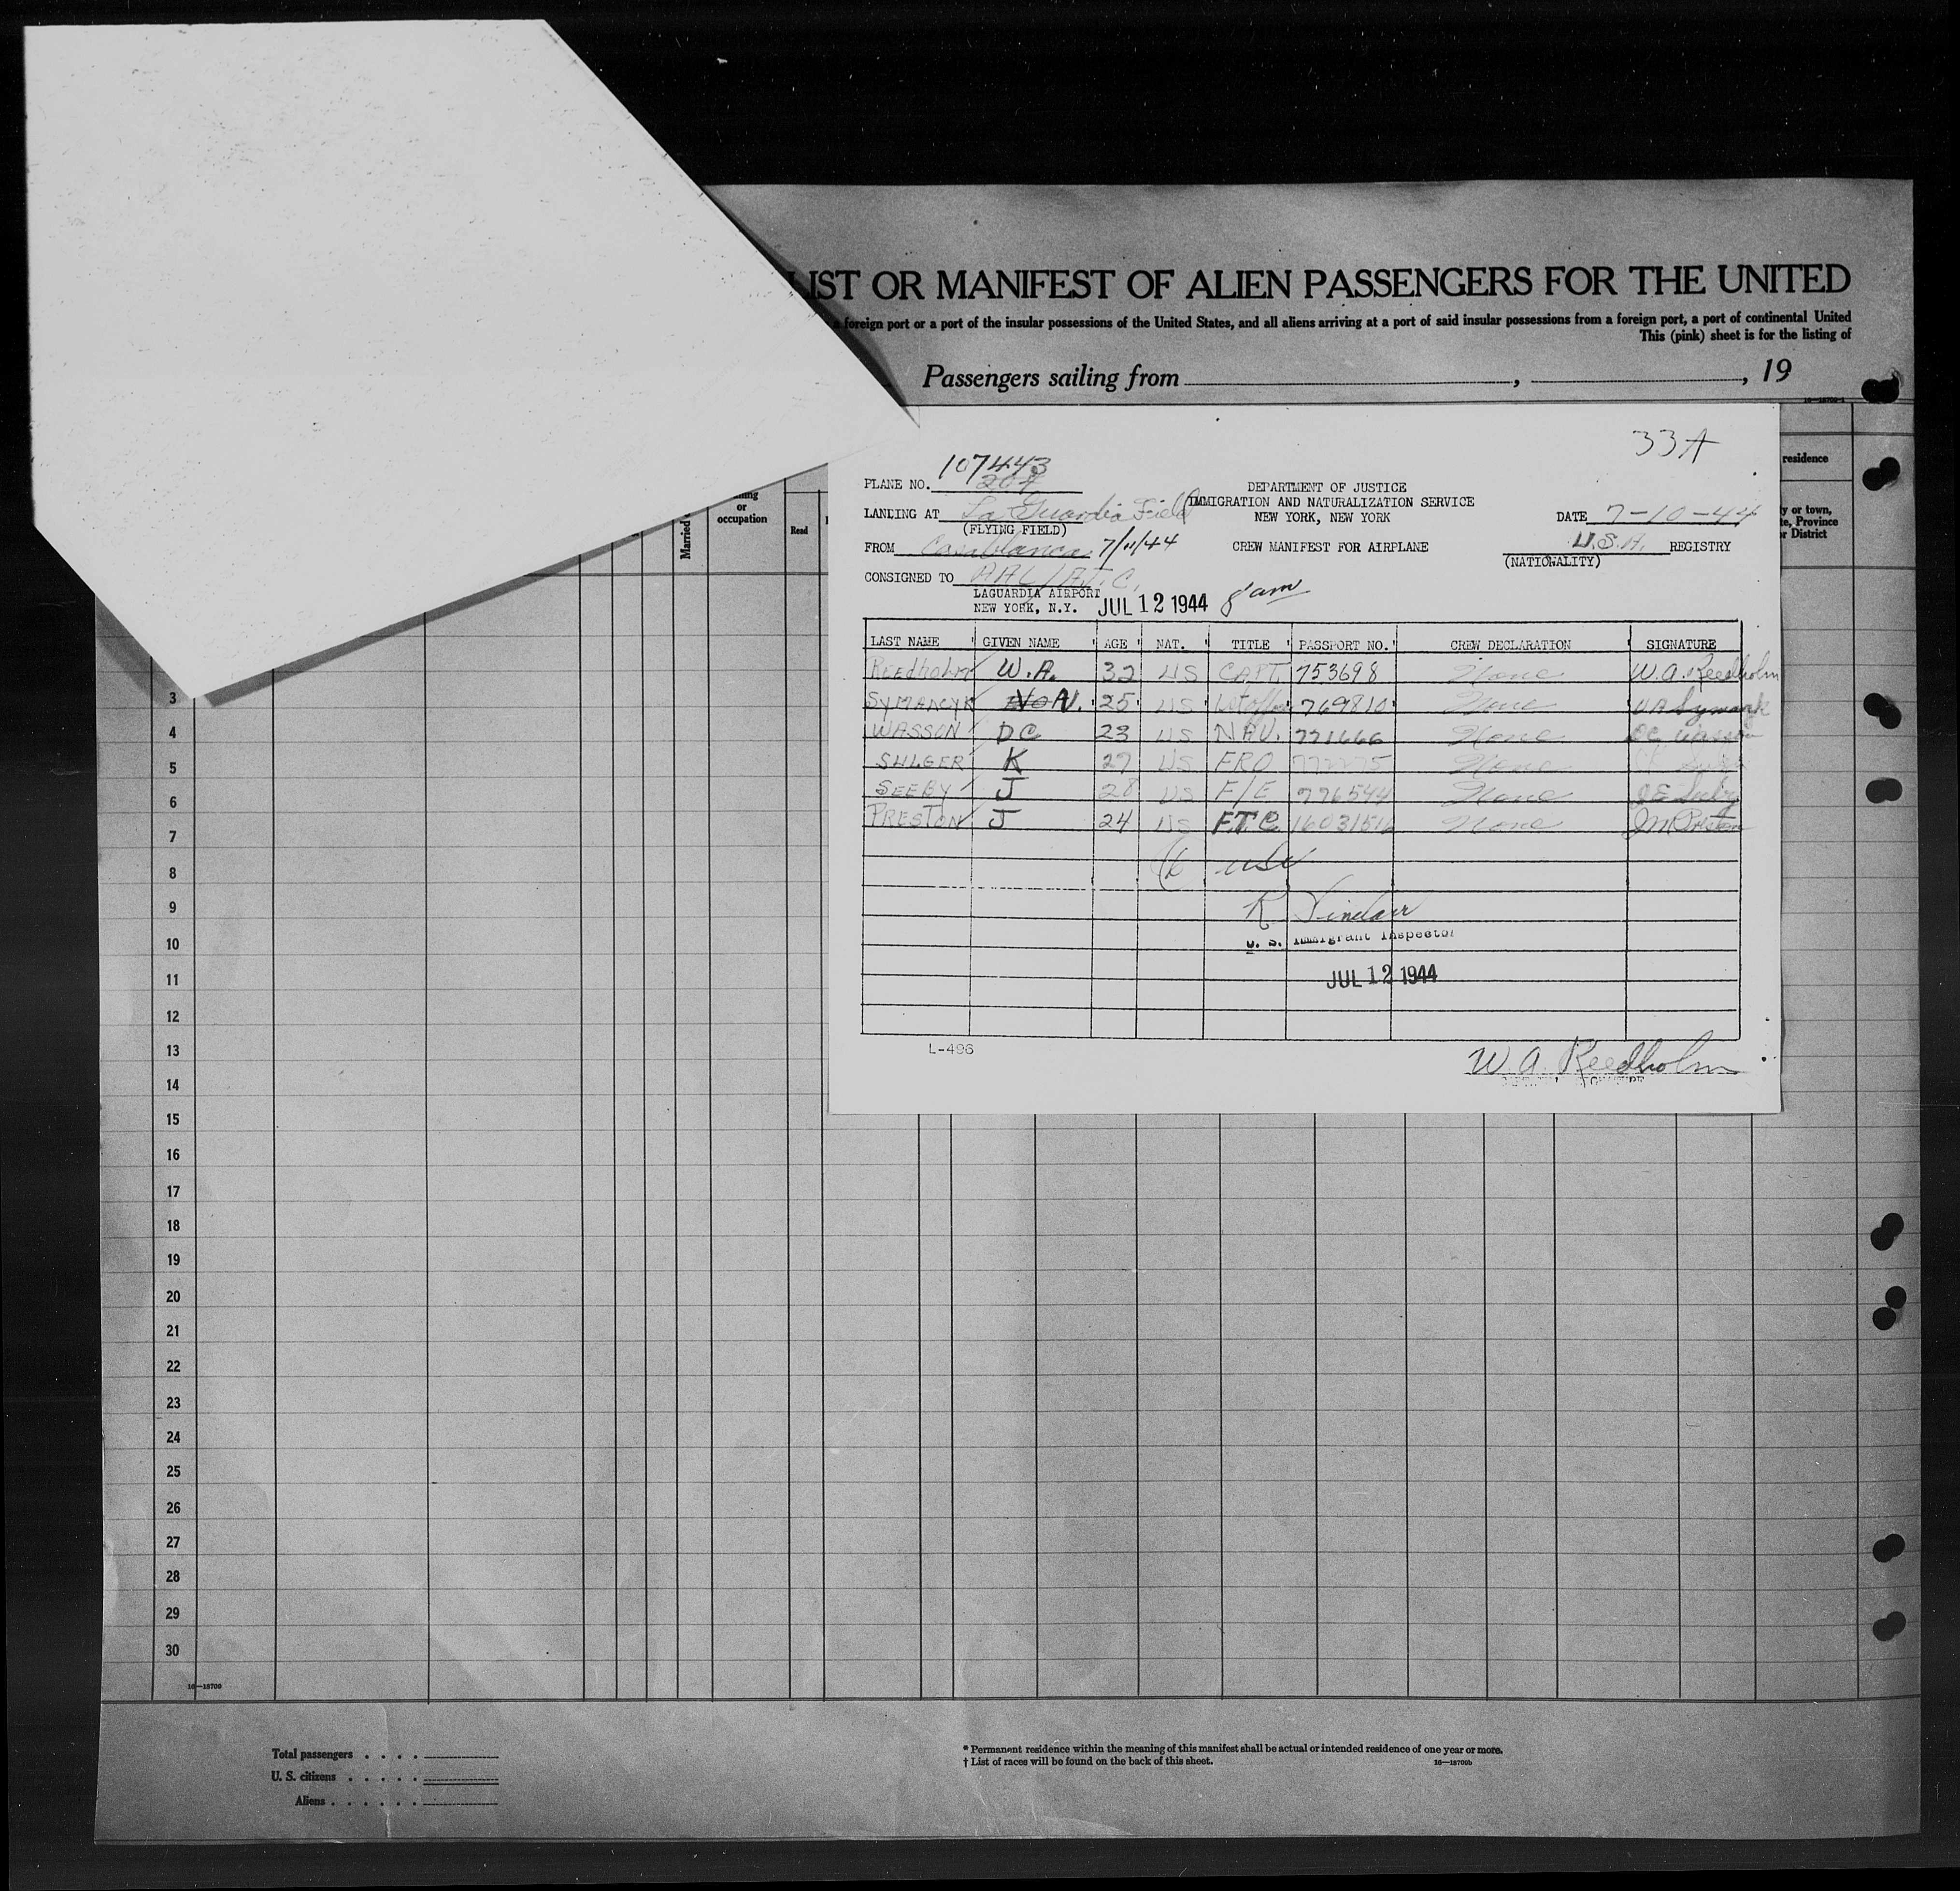 LIST OR MANIFEST OF ALIEN PASSENGERS FOR THE UNITED
foreign port or a port of the insular possessions of the United States, and all aliens arriving at a port of said insular possessions from a foreign port, a port of continental United
This (pink) sheet is for the listing of
Passengers sailing from , , 19
residence
or
occupation
Read
Married
or town,
Province
District
33A
107443
PLANE NO. 207
DEPARTMENT OF JUSTICE
IMMIGRATION AND NATURALIZATION SERVICE
NEW YORK, NEW YORK
LANDING AT La Guardia Field
(FLYING FIELD)
DATE 7-10-44
FROM Casablanca 7/11/44
CREW MANIFEST FOR AIRPLANE
U.S.A. REGISTRY
(NATIONALITY)
CONSIGNED TO AAL/A.T.C.
LAGUARDIA AIRPORT
NEW YORK, N.Y. JUL 12 1944 8 am
LAST NAME GIVEN NAME AGE NAT. TITLE PASSPORT NO. CREW DECLARATION SIGNATURE
Reedholm W.A. 32 US CAPT. 753698 None W.A. Reedholm
SYMANCYK N. 25 US 769810 None
WASSON DC 23 US NAV. 771666 None DC Wasson
SULGER K 27 US FRO None
SEEBY J 28 US F/E 776544 None
PRESTON J 24 US FTC None
6 usc
R Sinclair
U. S. Immigrant Inspector
JUL 12 1944
L-496
W. A. Reedholm
3
4
5
6
7
8
9
10
11
12
13
14
15
16
17
18
19
20
21
22
23
24
25
26
27
28
29
30
16—18700
Total passengers . . . .
U. S. citizens . . . . .
Aliens . . . . . .
* Permanent residence within the meaning of this manifest shall be actual or intended residence of one year or more.
† List of races will be found on the back of this sheet.
16—18700b